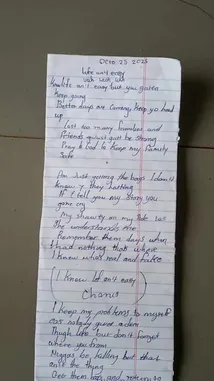 Octo 23 2023
Life ain't easy
Know life ain't easy but you gotta
Keep going
Better days are coming keep yo head
up
Lost too many homies and
friends just be strong
Pray to God to keep my family
safe
Am just getting the bags I don't
know y they hatting
If I tell you my story you
gone cry
My shawty on my side
she understands me
Remember them days when
I had nothing that where
I knew who's real and fake
(I know let ain't easy)
Chorus
I keep my problems to myself
cos nobody
Thugh life but don't forget
where you from
Niggas be falling but that
ain't the thing